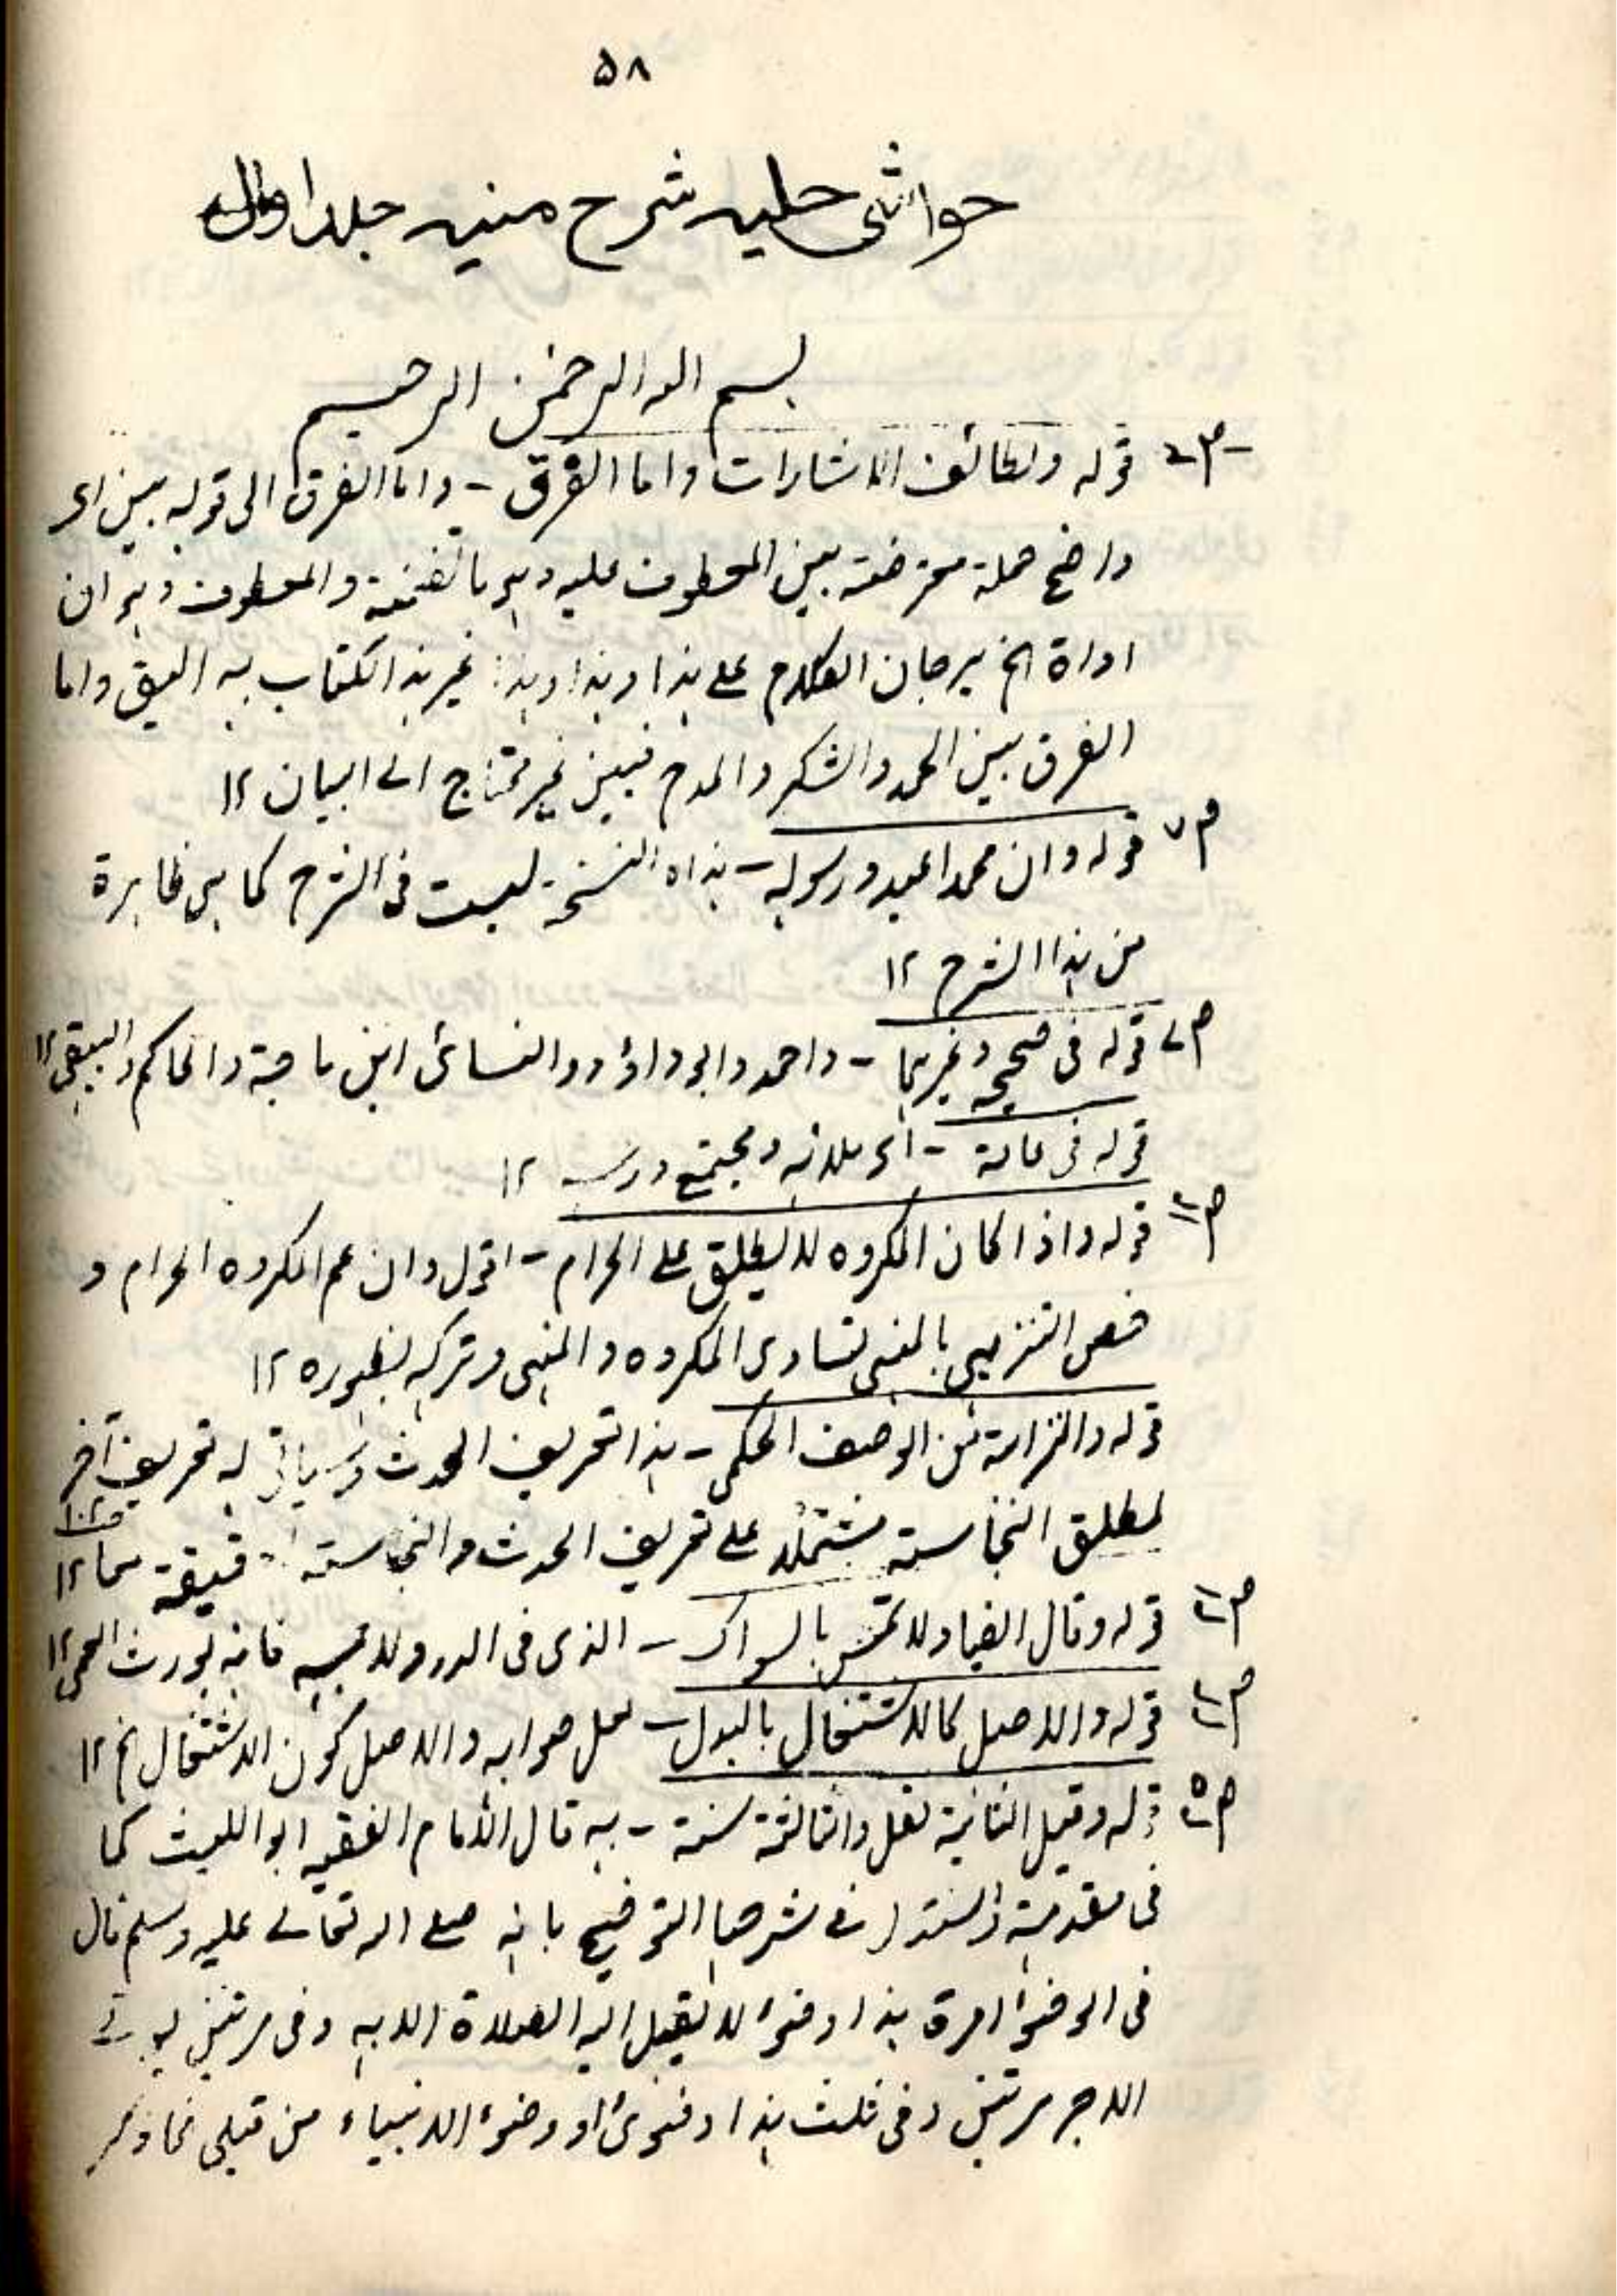 ۵۸
حواشی حلیہ شرح منیہ جلد اول
بسم اللہ الرحمن الرحیم
ص۲ قولہ ولطائف الاشارات واما الفرق - واما الفرق الی قولہ بین ای
واضح جملۃ معترضۃ بین المعطوف علیہ وہو والمعطوف وہو ان
اداۃ الخ یرجان الکلام علی ہذا وہذا وہذا غیر ہذا الکتاب بہ الیق واما
الفرق بین الحمد والشکر والمدح فبین غیر محتاج الی البیان ۱۲
ص۷ قولہ وان محمدا عبدہ ورسولہ - ہذہ النسخۃ لیست فی الشرح کما ہی ظاہرۃ
من ہذا الشرح ۱۲
ص۷ قولہ فی صحیحہ وغیرہما - واحمد وابو داؤد والنسائی ابن ماجۃ والحاکم والبیہقی ۱۲
قولہ فی عامۃ - ای بلدانہ ومجتمع ۱۲
ص۱۲ قولہ واذا کان المکروہ لا یطلق علی الحرام - اقول وان عم المکروہ الحرام و
خص التنزیہی بالمنہی تساوی المکروہ والمنہی وترکہ لظہورہ ۱۲
قولہ والنزاہۃ عن الوصف الحکمی - ہذا تعریف الحدث وسیاتی لہ تعریف آخر
لمطلق النجاسۃ مشتملا علی تعریف الحدث والنجاسۃ الحقیقۃ معا ۱۲
قولہ وقال ایضا ولا تمص بالسواک - الذی فی الدر ولا یمصہ فانہ یورث العمی ۱۲
قولہ والاصل کالاشتغال بالبول - لعل صوابہ والاصل کون الاشتغال الخ ۱۲
قولہ وقیل الثانیۃ نفل والثالثۃ سنۃ - بہ قال الامام الفقیہ ابو اللیث کما
فی مقدمتہ واستدل فی شرحہا التوضیح بانہ صلی اللہ تعالی علیہ وسلم قال
فی الوضوء مرۃ ہذا وضوء لا یقبل اللہ الصلاۃ الا بہ وفی مرتین یؤتی
الاجر مرتین وفی ثلث ہذا وضوئی او وضوء الانبیاء من قبلی فما ذکر